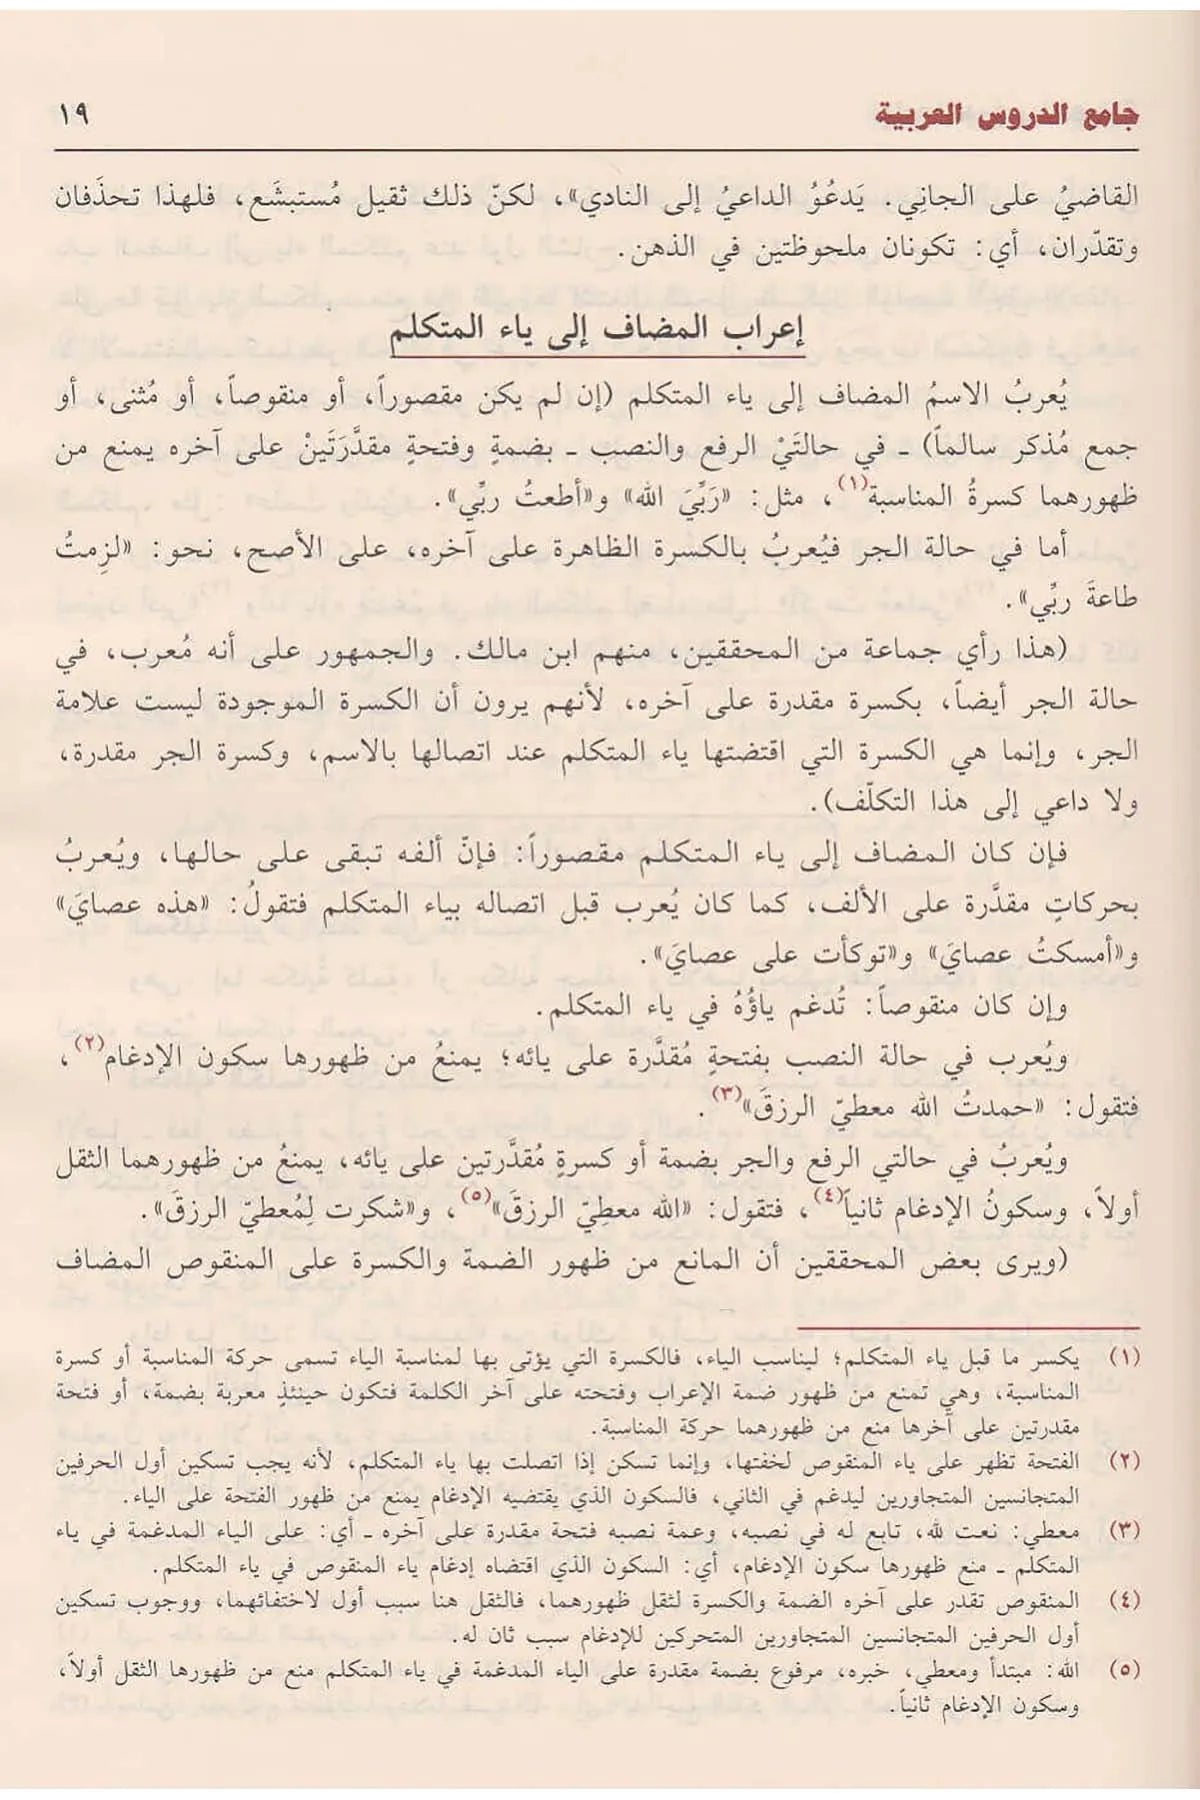 جامع الدروس العربية ١٩
القاضيُ على الجانِي. يَدعُوُ الداعيُ إلى النادي»، لكنّ ذلك ثقيل مُستبشَع، فلهذا تحذَفان
وتقدّران، أي: تكونان ملحوظتين في الذهن.
إعراب المضاف إلى ياء المتكلم
يُعربُ الاسمُ المضاف إلى ياء المتكلم (إن لم يكن مقصوراً، أو منقوصاً، أو مُثنى، أو
جمع مُذكر سالماً) ـ في حالتَيْ الرفع والنصب ـ بضمةٍ وفتحةٍ مقدَّرَتَيْنْ على آخره يمنع من
ظهورهما كسرةُ المناسبة(١)، مثل: «رَبِّيَ الله» و«أطعتُ ربِّي».
أما في حالة الجر فيُعربُ بالكسرة الظاهرة على آخره، على الأصح، نحو: «لزِمتُ
طاعةَ ربِّي».
(هذا رأي جماعة من المحققين، منهم ابن مالك. والجمهور على أنه مُعرب، في
حالة الجر أيضاً، بكسرة مقدرة على آخره، لأنهم يرون أن الكسرة الموجودة ليست علامة
الجر، وإنما هي الكسرة التي اقتضتها ياء المتكلم عند اتصالها بالاسم، وكسرة الجر مقدرة،
ولا داعي إلى هذا التكلّف).
فإن كان المضاف إلى ياء المتكلم مقصوراً: فإنّ ألفه تبقى على حالها، ويُعربُ
بحركاتٍ مقدَّرة على الألف، كما كان يُعرب قبل اتصاله بياء المتكلم فتقولُ: «هذه عصايَ»
و«أمسكتُ عصايَ» و«توكأت على عصايَ».
وإن كان منقوصاً: تُدغم ياؤُهُ في ياء المتكلم.
ويُعرب في حالة النصب بفتحةٍ مُقدَّرة على يائه؛ يمنعُ من ظهورها سكون الإدغام(٢)،
فتقول: «حمدتُ الله معطيّ الرزقَ»(٣).
ويُعربُ في حالتي الرفع والجر بضمة أو كسرةٍ مُقدَّرتين على يائه، يمنعُ من ظهورهما الثقل
أولاً، وسكونُ الإدغام ثانياً(٤)، فتقول: «الله معطِيّ الرزقَ»(٥)، و«شكرت لِمُعطيّ الرزقَ».
(ويرى بعض المحققين أن المانع من ظهور الضمة والكسرة على المنقوص المضاف
(١) يكسر ما قبل ياء المتكلم؛ ليناسب الياء، فالكسرة التي يؤتى بها لمناسبة الياء تسمى حركة المناسبة أو كسرة
المناسبة، وهي تمنع من ظهور ضمة الإعراب وفتحته على آخر الكلمة فتكون حينئذٍ معربة بضمة، أو فتحة
مقدرتين على آخرها منع من ظهورهما حركة المناسبة.
(٢) الفتحة تظهر على ياء المنقوص لخفتها، وإنما تسكن إذا اتصلت بها ياء المتكلم، لأنه يجب تسكين أول الحرفين
المتجانسين المتجاورين ليدغم في الثاني، فالسكون الذي يقتضيه الإدغام يمنع من ظهور الفتحة على الياء.
(٣) معطي: نعت لله، تابع له في نصبه، وعمة نصبه فتحة مقدرة على آخره ـ أي: على الياء المدغمة في ياء
المتكلم ـ منع ظهورها سكون الإدغام، أي: السكون الذي اقتضاه إدغام ياء المنقوص في ياء المتكلم.
(٤) المنقوص تقدر على آخره الضمة والكسرة لثقل ظهورهما، فالثقل هنا سبب أول لاختفائهما، ووجوب تسكين
أول الحرفين المتجانسين المتجاورين المتحركين للإدغام سبب ثان له.
(٥) الله: مبتدأ ومعطي، خبره، مرفوع بضمة مقدرة على الياء المدغمة في ياء المتكلم منع من ظهورها الثقل أولاً،
وسكون الإدغام ثانياً.